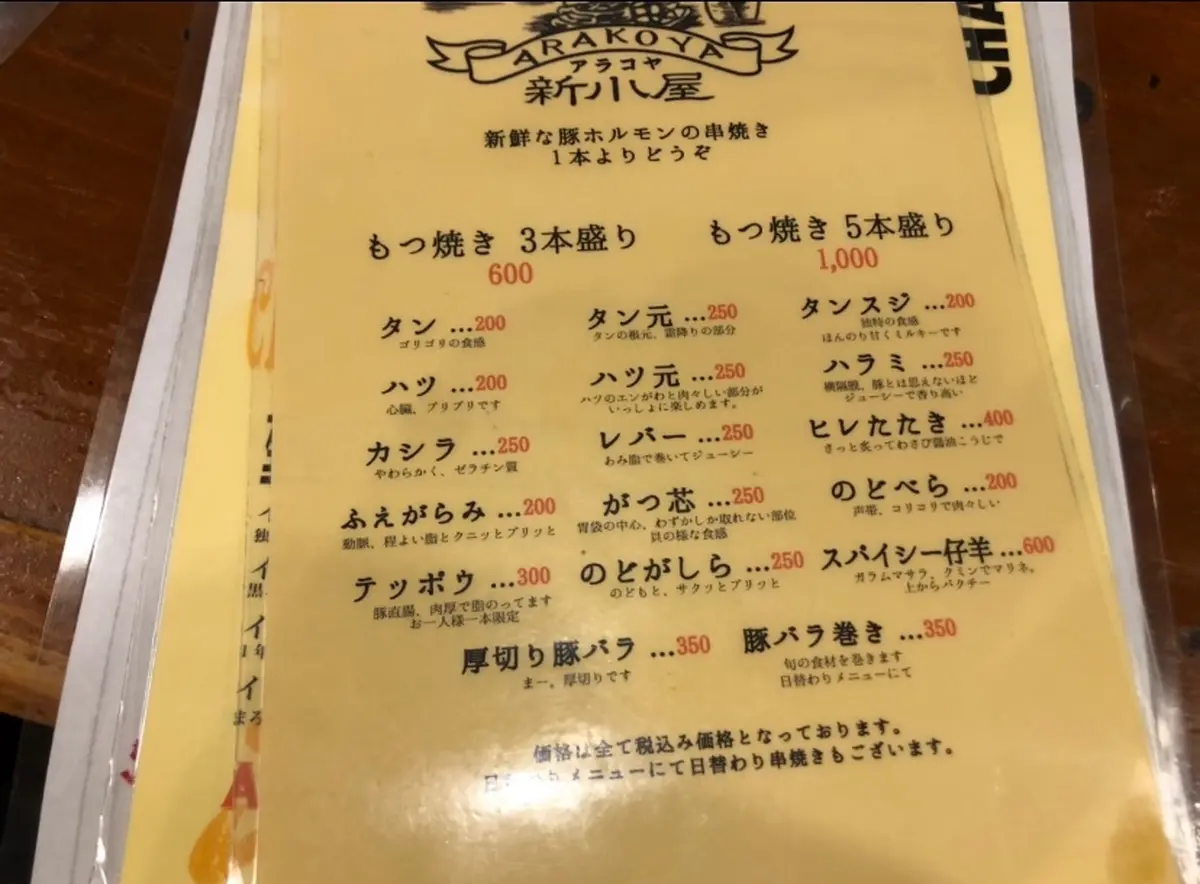 ARAKOYA
アラコヤ
新小屋
CHA
新鮮な豚ホルモンの串焼き
1本よりどうぞ
もつ焼き 3本盛り
600
もつ焼き 5本盛り
1,000
タン …200
ゴリゴリの食感
タン元 …250
タンの根元、霜降りの部分
タンスジ …200
独特の食感
ほんのり甘くミルキーです
ハツ …200
心臓、プリプリです
ハツ元 …250
ハツのエンがわと肉々しい部分が
いっしょに楽しめます。
ハラミ …250
横隔膜、豚とは思えないほど
ジューシーで香り高い
カシラ …250
やわらかく、ゼラチン質
レバー …250
あみ脂で巻いてジューシー
ヒレたたき …400
さっと炙ってわさび醤油こうじで
ふえがらみ …200
動脈、程よい脂とクニッとプリッと
がつ芯 …250
胃袋の中心、わずかしか取れない部位
貝の様な食感
のどべら …200
声帯、コリコリで肉々しい
テッポウ …300
豚直腸、肉厚で脂のってます
お一人様一本限定
のどがしら …250
のどもと、サクッとプリッと
スパイシー仔羊 …600
ガラムマサラ、クミンでマリネ。
上からパクチー
厚切り豚バラ …350
まー、厚切りです
豚バラ巻き …350
旬の食材を巻きます
日替わりメニューにて
価格は全て税込み価格となっております。
日替わりメニューにて日替わり串焼きもございます。